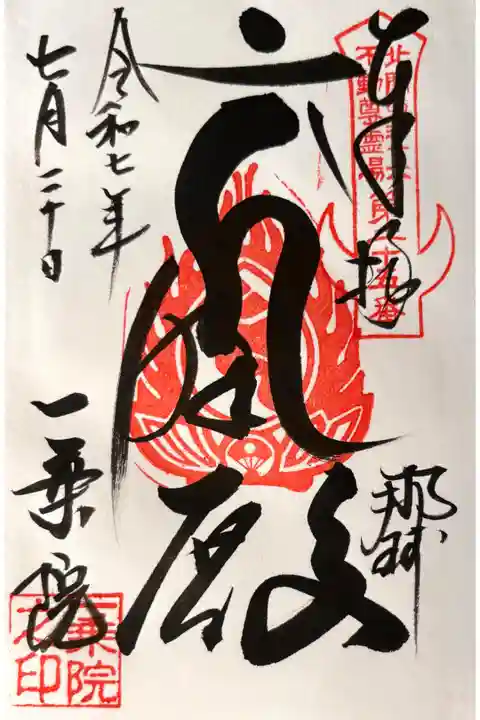 奉拝
北関東三十六
不動尊霊場第三十五番
那珂
殿
令和七年
七月二十日
一乗院
一乗院
之印